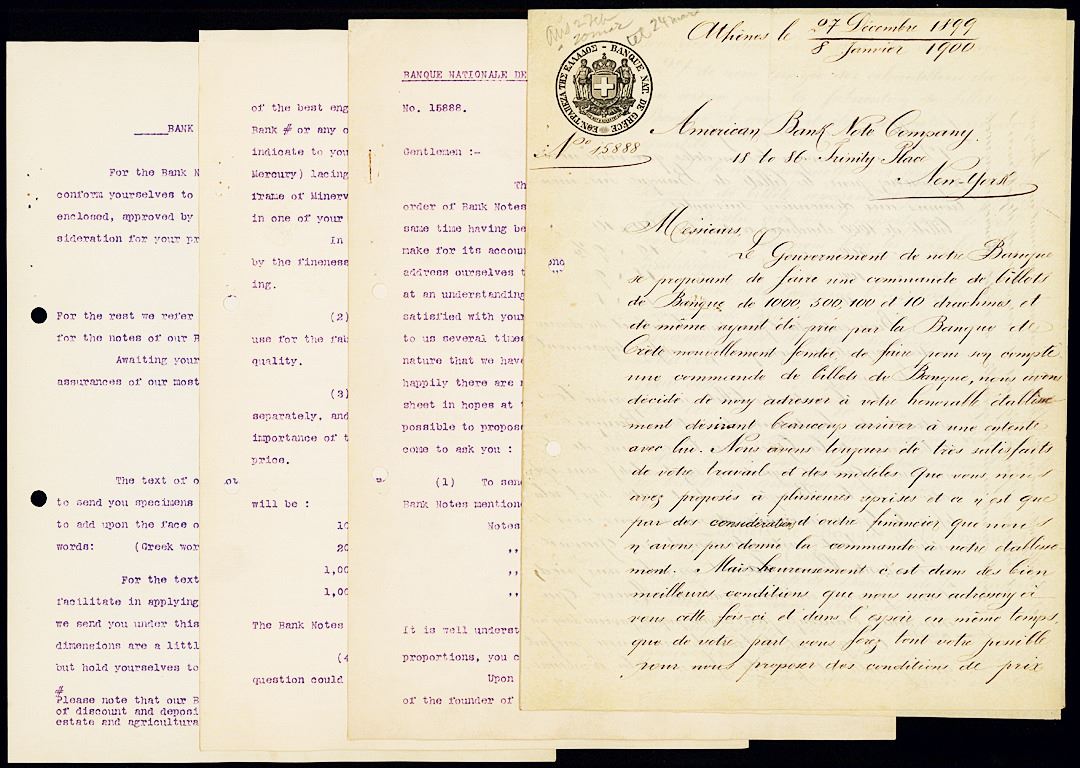 BANK
For the Bank N
conform yourselves to
enclosed, approved by
sideration for your pr
For the rest we refer
for the notes of our B
Awaiting your
assurances of our most
The text of o
to send you specimens
to add upon the face o
words: (Greek wor
For the text
facilitate in applying
we send you under this
dimensions are a littl
but hold yourselves to
#
Please note that our B
of discount and deposi
estate and agricultura
of the best eng
Bank # or any o
indicate to you
Mercury) lacing
frame of Minerv
in one of your
In
by the fineness
ing.
(2)
use for the fab
quality.
(3)
separately, and
importance of t
price.
will be :
10
20
1,00
1,00
The Bank Notes
(4
question could
BANQUE NATIONALE DE
No. 15888.
Gentlemen :-
Th
order of Bank Notes
same time having be
make for its accoun
address ourselves t
at an understanding
satisfied with your
to us several times
nature that we have
happily there are m
sheet in hopes at t
possible to propose
come to ask you :
(1) To send
Bank Notes mention
Notes
,,
,,
,,
It is well underst
proportions, you c
Upon
of the founder of
tel 24 mar
ΕΘΝ. ΤΡΑΠΕΖΑ ΤΗΣ ΕΛΛΑΔΟΣ - BANQUE NAT. DE GRECE
No 15888
Athènes le 27 Décembre 1899
8 Janvier 1900
American Bank Note Company
78 to 86 Trinity Place
New-York
Messieurs,
Le Gouvernement de notre Banque
se proposant de faire une commande de billets
de Banque de 1000, 500, 100 et 10 drachmes, et
de même ayant été prié par la Banque de
Crète nouvellement fondée, de faire pour son compte
une commande de billets de Banque, nous avons
décidé de nous adresser à votre honorable établisse
ment désirant beaucoup arriver à une entente
avec lui. Nous avons toujours été très satisfaits
de votre travail et des modèles que vous nous
avez proposés à plusieures reprises et ce n'est que
par des considérations d'ordre financier que nous
n'avons pas donné la commande à votre établisse
ment. Mais heureusement c'est dans des bien
meilleures conditions que nous nous adressons à
vous cette fois-ci et dans l'espoir en même temps
que de votre part vous ferez tout votre possible
pour nous proposer des conditions de prix